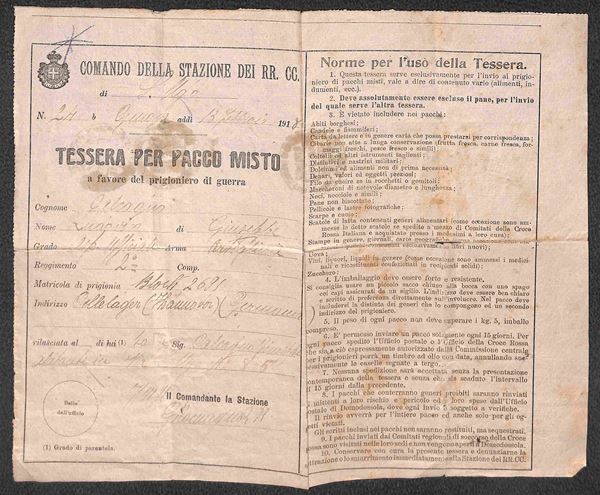 COMANDO DELLA STAZIONE DEI RR. CC.
di
N. addì 191
TESSERA PER PACCO MISTO
a favore del prigioniero di guerra
Cognome
Nome di Giuseppe
Grado arma
Reggimento 2° Comp.
Matricola di prigionia Block 2681
Indirizzo Cellelager (Hannover) (Germania)
rilasciata al di lui (1) Sig.
Bollo
dell'ufficio
Il Comandante la Stazione
(1) Grado di parentela.
Norme per l'uso della Tessera.
1. Questa tessera serve esclusivamente per l'invio al prigio-
niero di pacchi misti, vale a dire di contenuto vario (alimenti,
indumenti, ecc.).
2. Deve assolutamente essere escluso il pane, per l'invio
del quale serve l'altra tessera.
3. È vietato includere nei pacchi:
Abiti borghesi;
Candele e fiammiferi;
Carta da lettere e in genere carta che possa prestarsi per corrispondenza;
Cibarie non atte a lunga conservazione (frutta fresca, carne fresca, for-
maggi freschi, pesce fresco e simili);
Coltelli ed altri istrumenti taglienti;
Distintivi e nastrini militari;
Dolciumi ed alimenti non di prima necessità;
Denari, valori ed oggetti preziosi;
Filo da cucire se in rocchetti e gomitoli;
Maccheroni di notevole diametro e lunghezza;
Noci, nocciole e simili;
Pane non biscottato;
Pellicole e lastre fotografiche;
Scarpe e cuoio;
Scatole di latta contenenti generi alimentari (come eccezione sono am-
messe le dette scatole se spedite a mezzo di Comitati della Croce
Rossa Italiana e acquistate presso i medesimi a loro cura);
Stampe in genere, giornali, carte geografiche
Uova;
Vini, liquori, liquidi in genere (come eccezione sono ammessi i medi-
cinali e ricostituenti confezionati in recipienti solidi);
Zucchero.
4. L'imballaggio deve essere forte e resistente.
Si consiglia usare un piccolo sacco chiuso alla bocca con uno spago
coi capi assicurati da un sigillo. L'indirizzo deve essere ben chiaro
e scritto di preferenza direttamente sull'involucro. Nel pacco deve
includersi la distinta dei generi che lo compongono ed un secondo
indirizzo del prigioniero.
5. Il peso di ogni pacco non deve superare i kg. 5, imballo
compreso.
6. È permesso inviare un pacco misto ogni 15 giorni. Per
ogni pacco spedito l'Ufficio postale o l'Ufficio della Croce Rossa
che sia a ciò espressamente autorizzato dalla Commissione centrale
per i prigionieri porrà un timbro ad olio con data, annullando suc-
cessivamente le caselle segnate a tergo.
7. Nessuna spedizione sarà accettata senza la presentazione
contemporanea della tessera e senza che sia scaduto l'intervallo
di 15 giorni dalla precedente.
8. I pacchi che conterranno generi proibiti saranno rinviati
ai mittenti a loro rischio e pericolo ed a loro spese dall'Ufficio
postale di Domodossola, dove ogni invio è soggetto a verifica.
Il rinvio avverrà per l'intiero pacco ed anche solo per gli og-
getti vietati.
Gli scritti inclusi nei pacchi non saranno restituiti, ma sequestrati.
9. I pacchi inviati dai Comitati regionali di soccorso della Croce
rossa sono visitati nelle loro sedi e non vengono aperti a Domodossola.
10. Conservare con cura la presente tessera e denunziarne la
sottrazione o lo smarrimento immediatamente alla Stazione dei RR. CC.